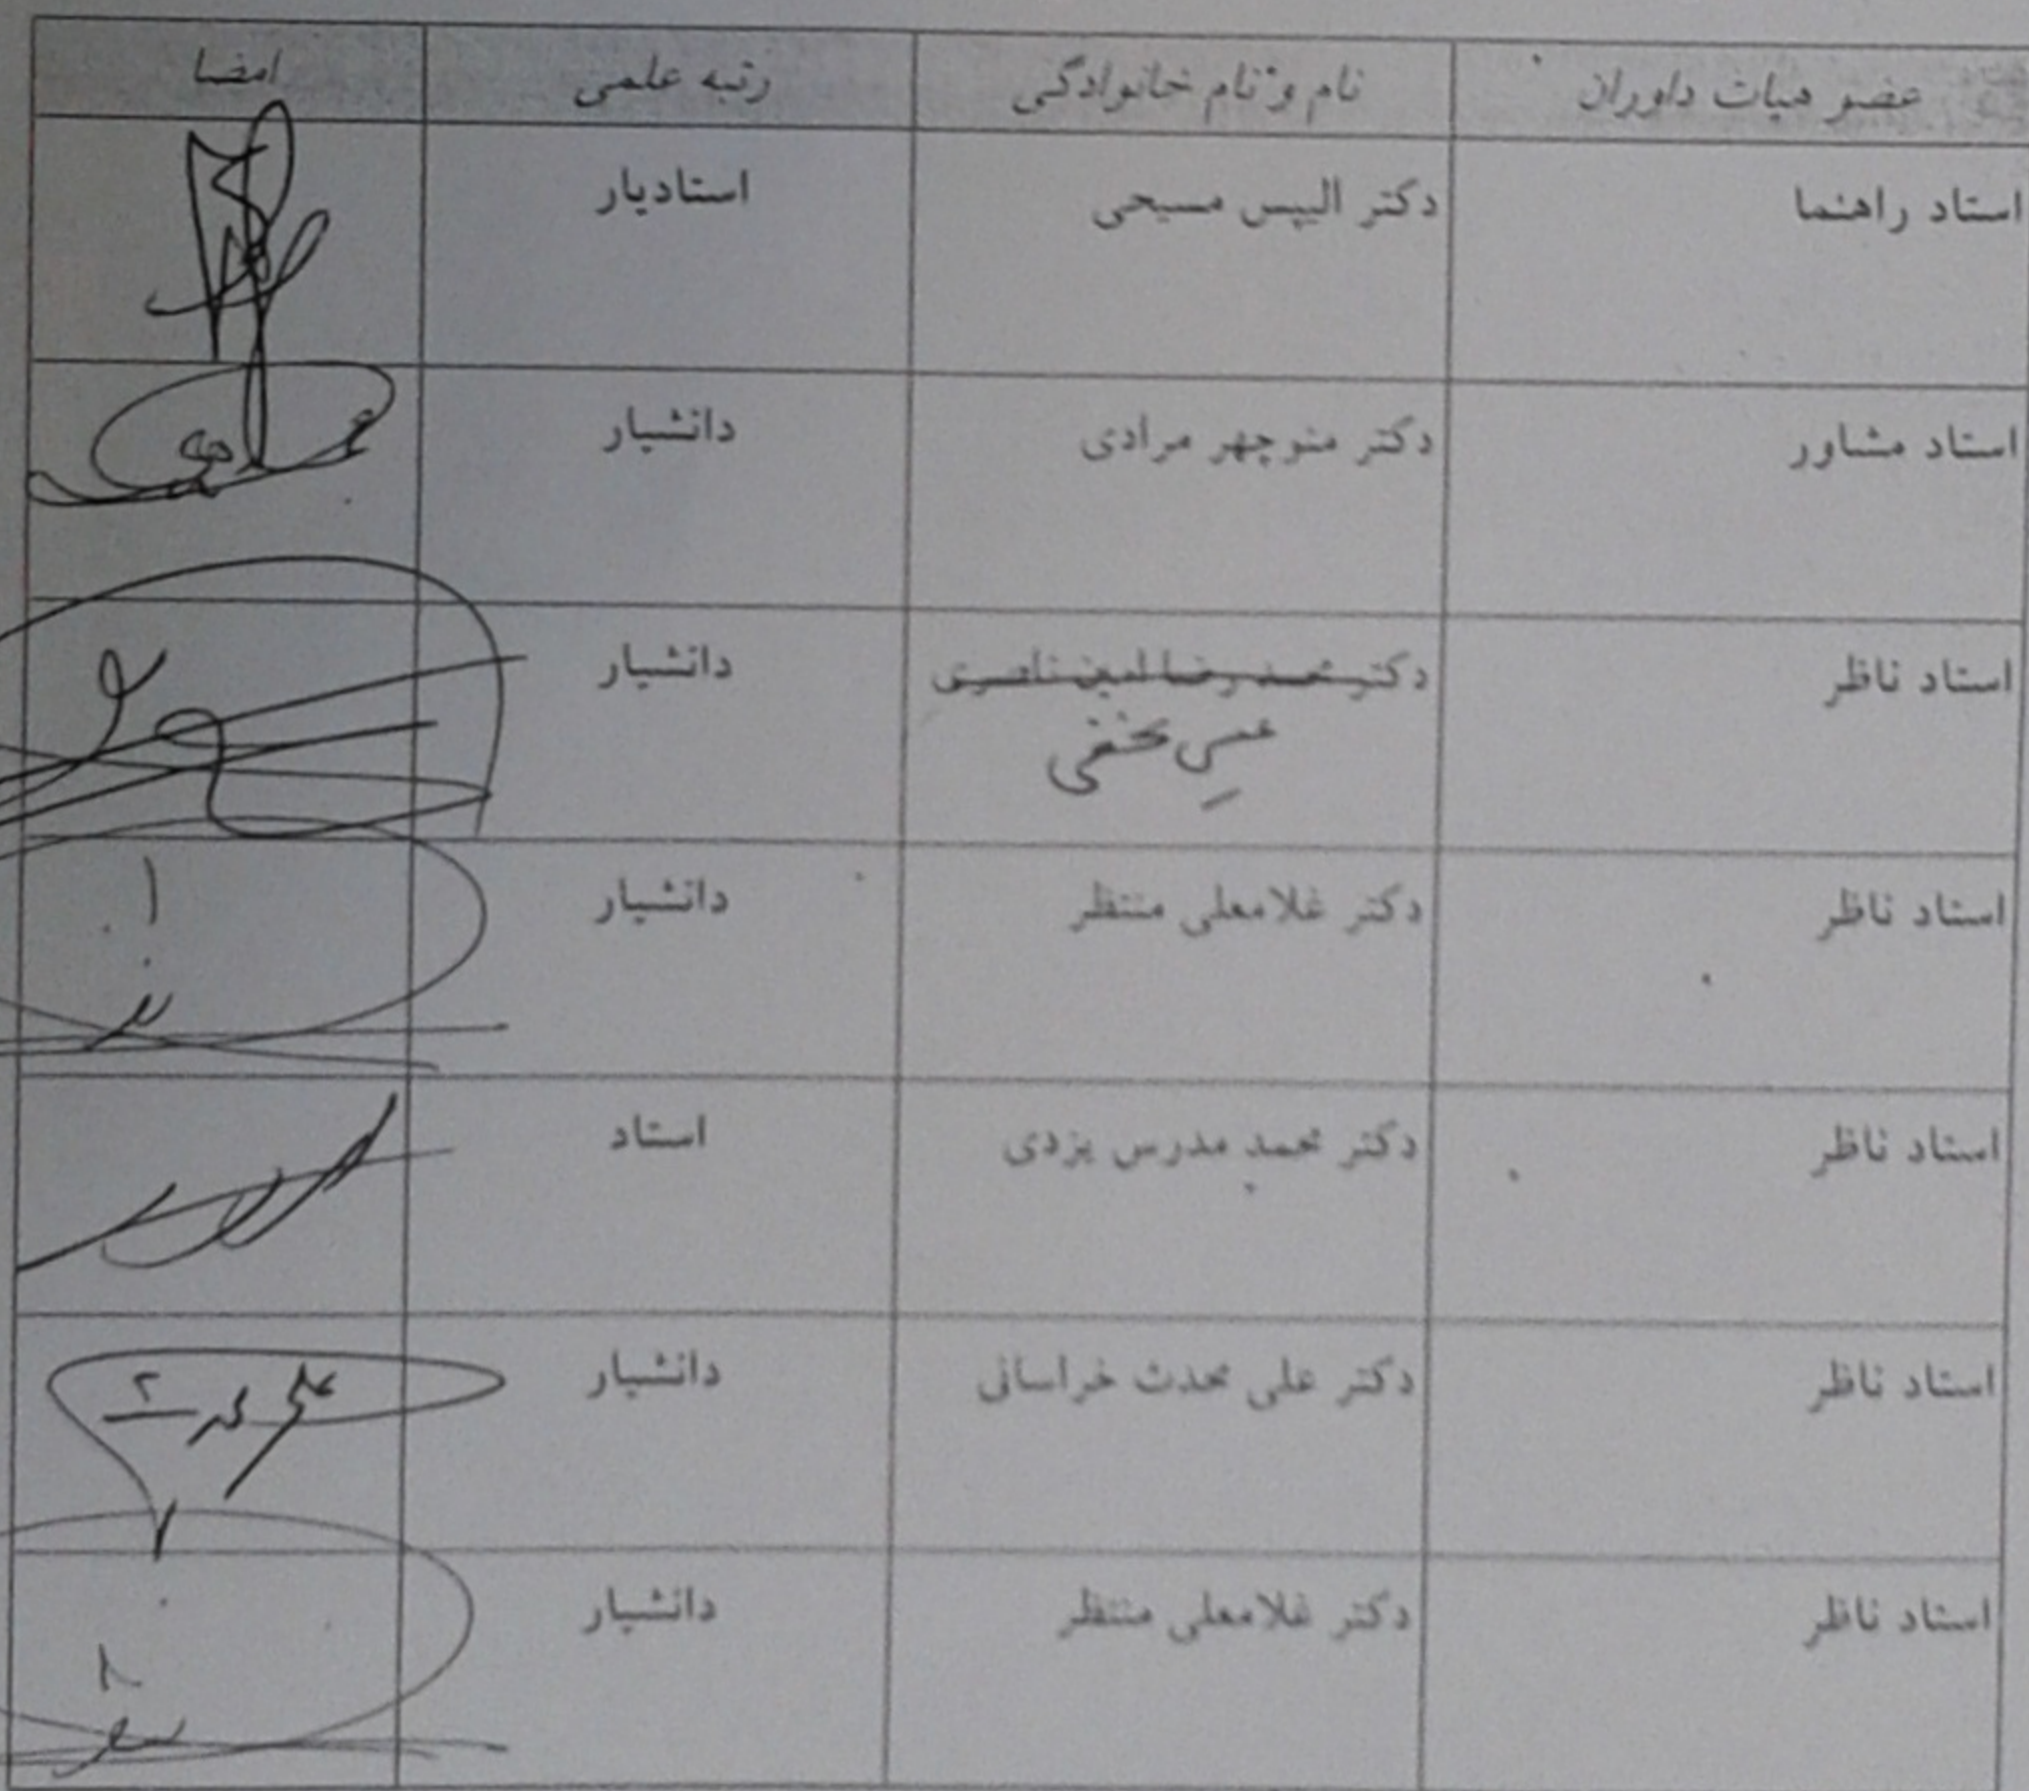 عضو هیات داوران نام و نام خانوادگی رتبه علمی امضا
استاد راهنما دکتر الیپس مسیحی استادیار
استاد مشاور دکتر منوچهر مرادی دانشیار
استاد ناظر دکتر محمدرضا امین ناصری دانشیار
استاد ناظر دکتر غلامعلی منتظر دانشیار
استاد ناظر دکتر محمد مدرس یزدی استاد
استاد ناظر دکتر علی محدث خراسانی دانشیار
استاد ناظر دکتر غلامعلی منتظر دانشیار